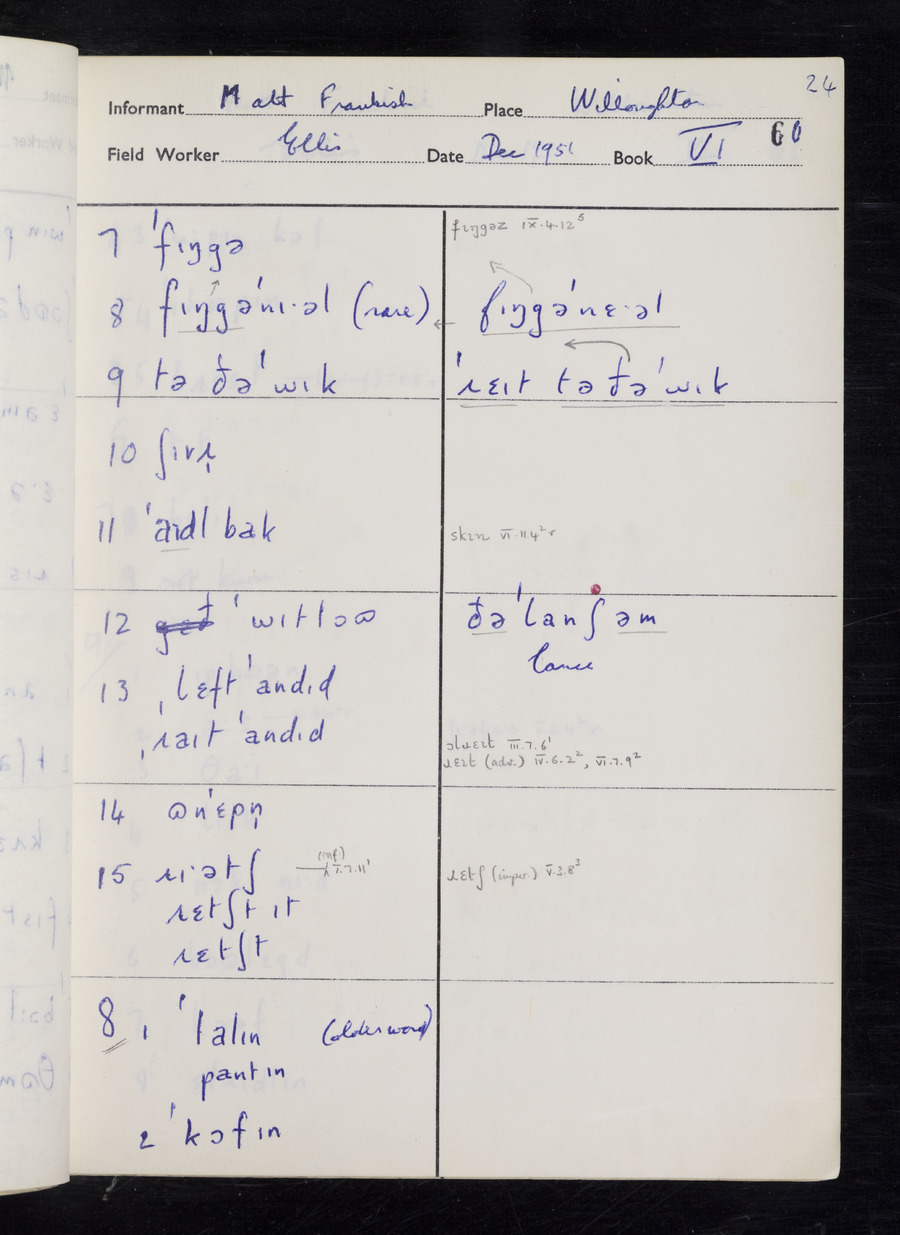 24
Informant Matt Frankish Place Willoughton
Field Worker Ellis Date Dec 1951 Book VI 60
7 ˈfɪŋgə
fɪŋgəz IX.4.12⁵
8 fɪŋgəˈnɪ·əl (rare)
fɪŋgəˈnɛ·əl
9 tə ðəˈwɪk
ˈɹɛɪt tə ðəˈwɪk
10 ʃɪvɹ̩
11 ˈaɪdl bak
skɪn VI.11.4² r
12 ðˈwɪtlɔʊ
ðəˈlanʃ əm
lance
13 ˌlɛftˈandɪd
ˌɹaɪtˈandɪd
ɔlɹɛɪt III.7.6¹
ɹɛɪt (adv.) IV.6.2², VI.7.9²
14 ʊnˈɛpn̩
15 ɹi·ətʃ (inf.) V.7.11¹
ɹɛtʃ (imper.) V.3.8³
ɹɛtʃt ɪt
ɹɛtʃt
8 1 ˈtalɪn (older word)
pantɪn
2 ˈkɔfɪn